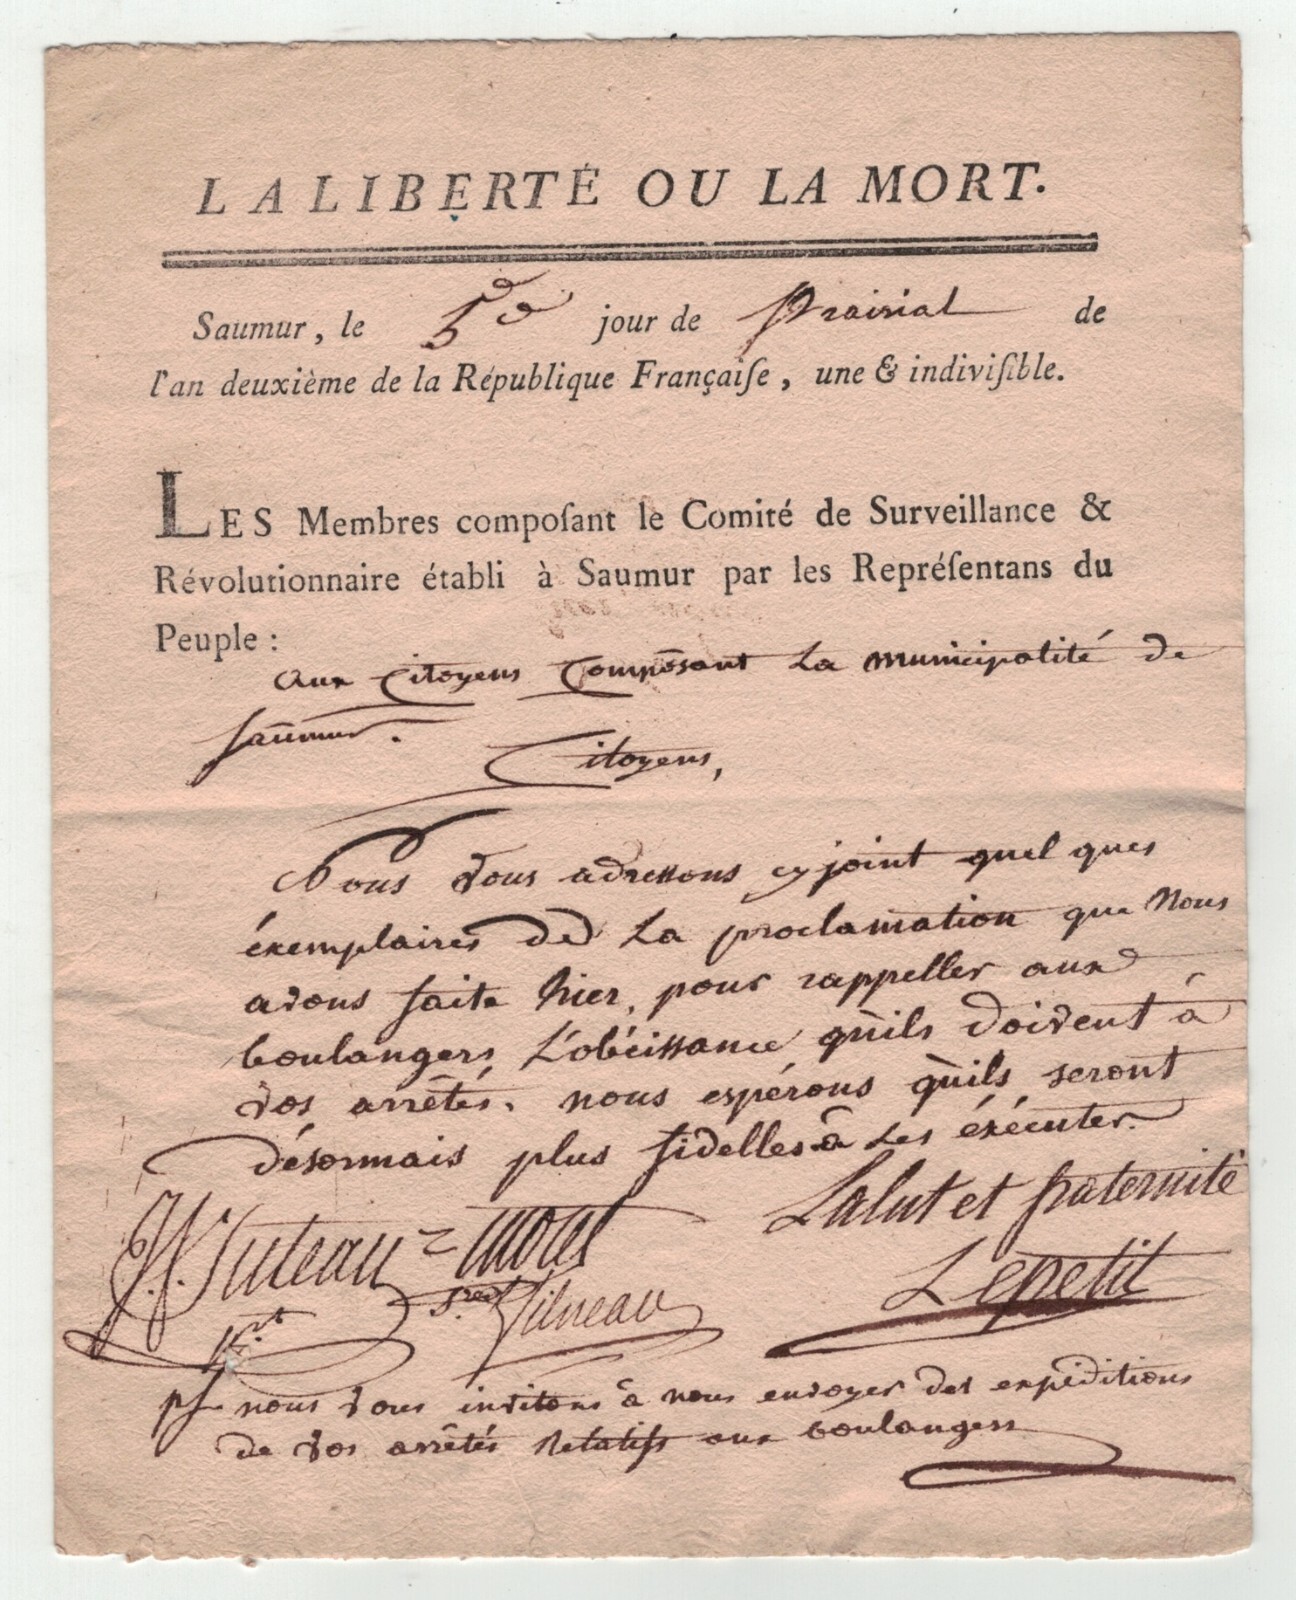 LA LIBERTÉ OU LA MORT.
Saumur, le 5 jour de Prairial de
l'an deuxième de la République Françaiſe, une & indiviſible.
LES Membres compoſant le Comité de Surveillance &
Révolutionnaire établi à Saumur par les Repréſentans du
Peuple :
aux Citoyens Composant la municipalité de
saumur.
Citoyens,
Nous vous adressons cy joint quel ques
éxemplaires de la proclamation que nous
avons faite hier, pour rappeller aux
boulangers, l'obéissance qu'ils doivent à
vos arrêtés. nous espérons qu'ils seront
désormais plus fidelles à les éxécuter.
Salut et fraternité
Lepetit
ps nous vous invitons à nous envoyer des expéditions
de vos arrêtés relatifs aux boulangers